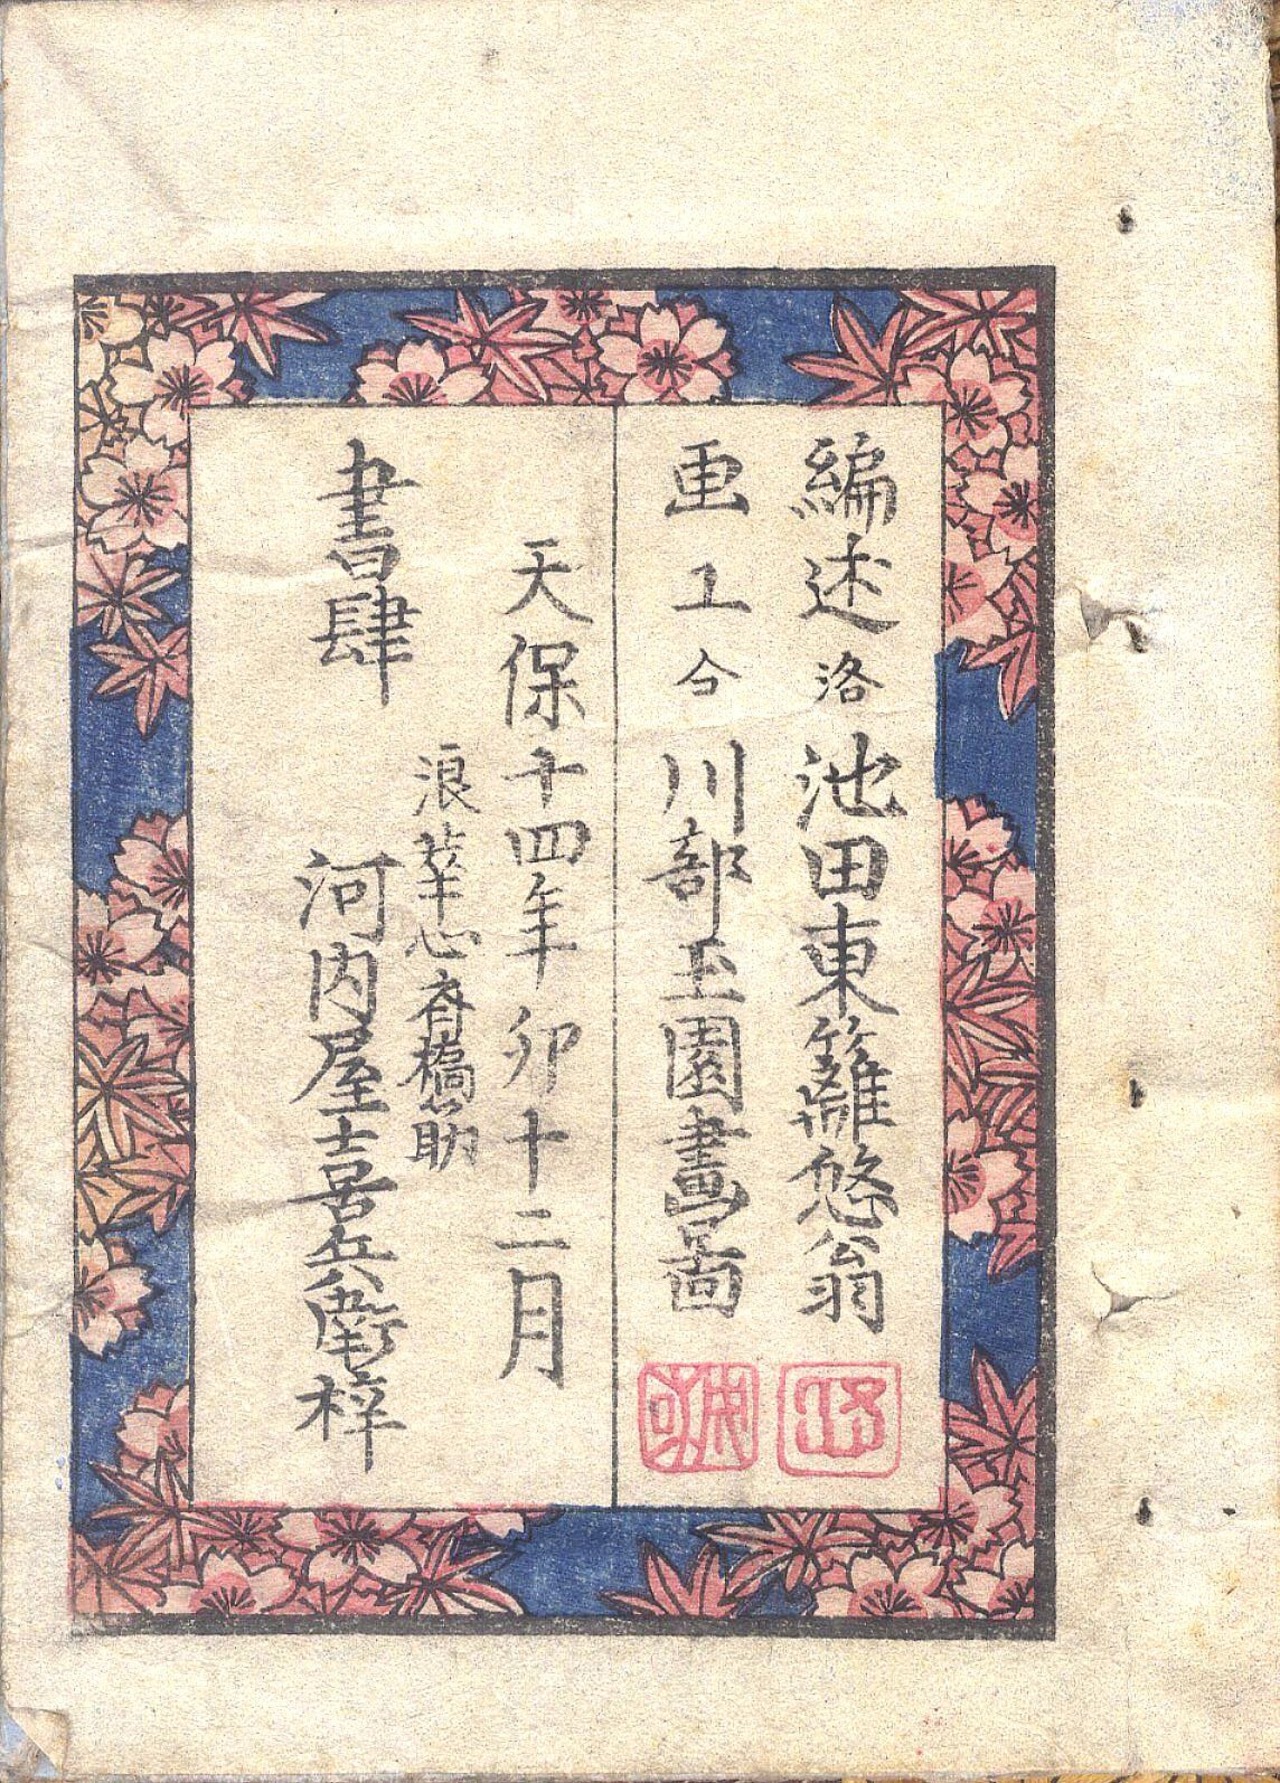 編述 洛 池田東籬悠翁
画工 仝 川部玉園畫啚
天保十四年卯十二月
書肆
浪華心斎橋筋
河内屋喜兵衛梓